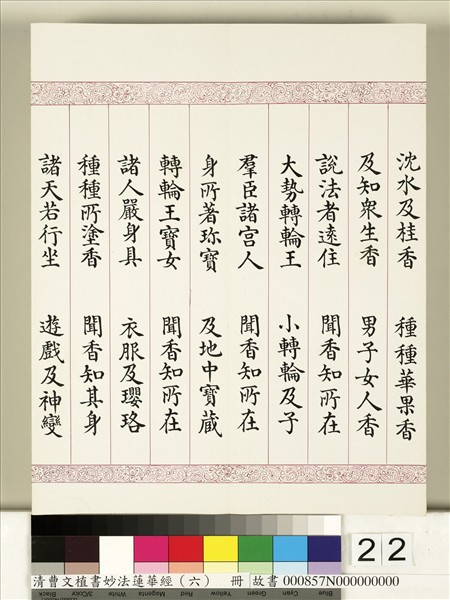 沈水及桂香　種種華果香
及知衆生香　男子女人香
說法者遠住　聞香知所在
大勢轉輪王　小轉輪及子
羣臣諸宮人　聞香知所在
身所著珎寶　及地中寶蔵
轉輪王寶女　聞香知所在
諸人嚴身具　衣服及瓔珞
種種所塗香　聞香知其身
諸天若行坐　遊戲及神變
22
Blue Cyan Green Yellow Red Magenta White 3/Color Black
清曹文植書妙法蓮華經（六）　冊 故書 000857N000000000